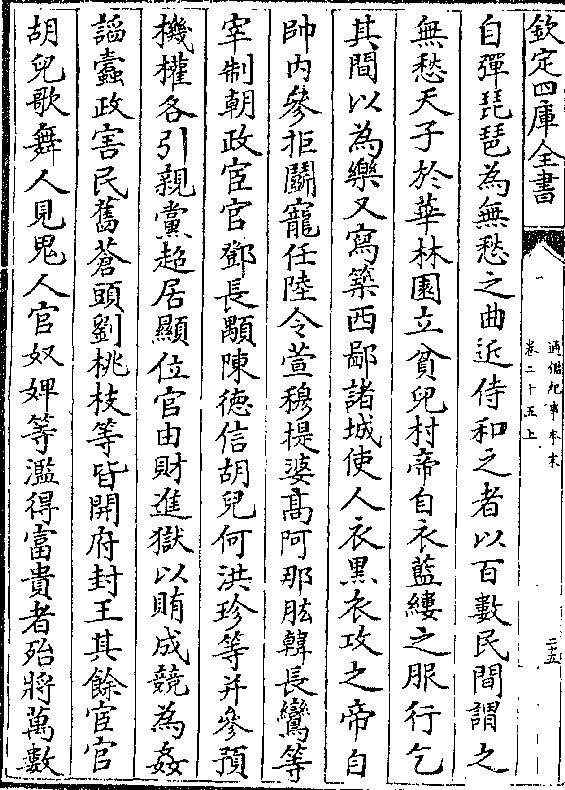 欽定四庫全書
通鑑紀事本末
卷二十五上
二五
自彈琵琶為無愁之曲近侍和之者以百數民間謂之
無愁天子於華林園立貧兒村帝自衣藍縷之服行乞
其間以為樂又寫築西鄙諸城使人衣黑衣攻之帝自
帥内參拒鬬寵任陸令萱穆提婆高阿那肱韓長鸞等
宰制朝政宦官鄧長顒陳徳信胡兒何洪珍等并參預
機權各引親黨超居顯位官由財進獄以賄成競為姦
謟蠹政害民舊蒼頭劉桃枝等皆開府封王其餘宦官
胡兒歌舞人見鬼人官奴婢等濫得富貴者殆將萬數